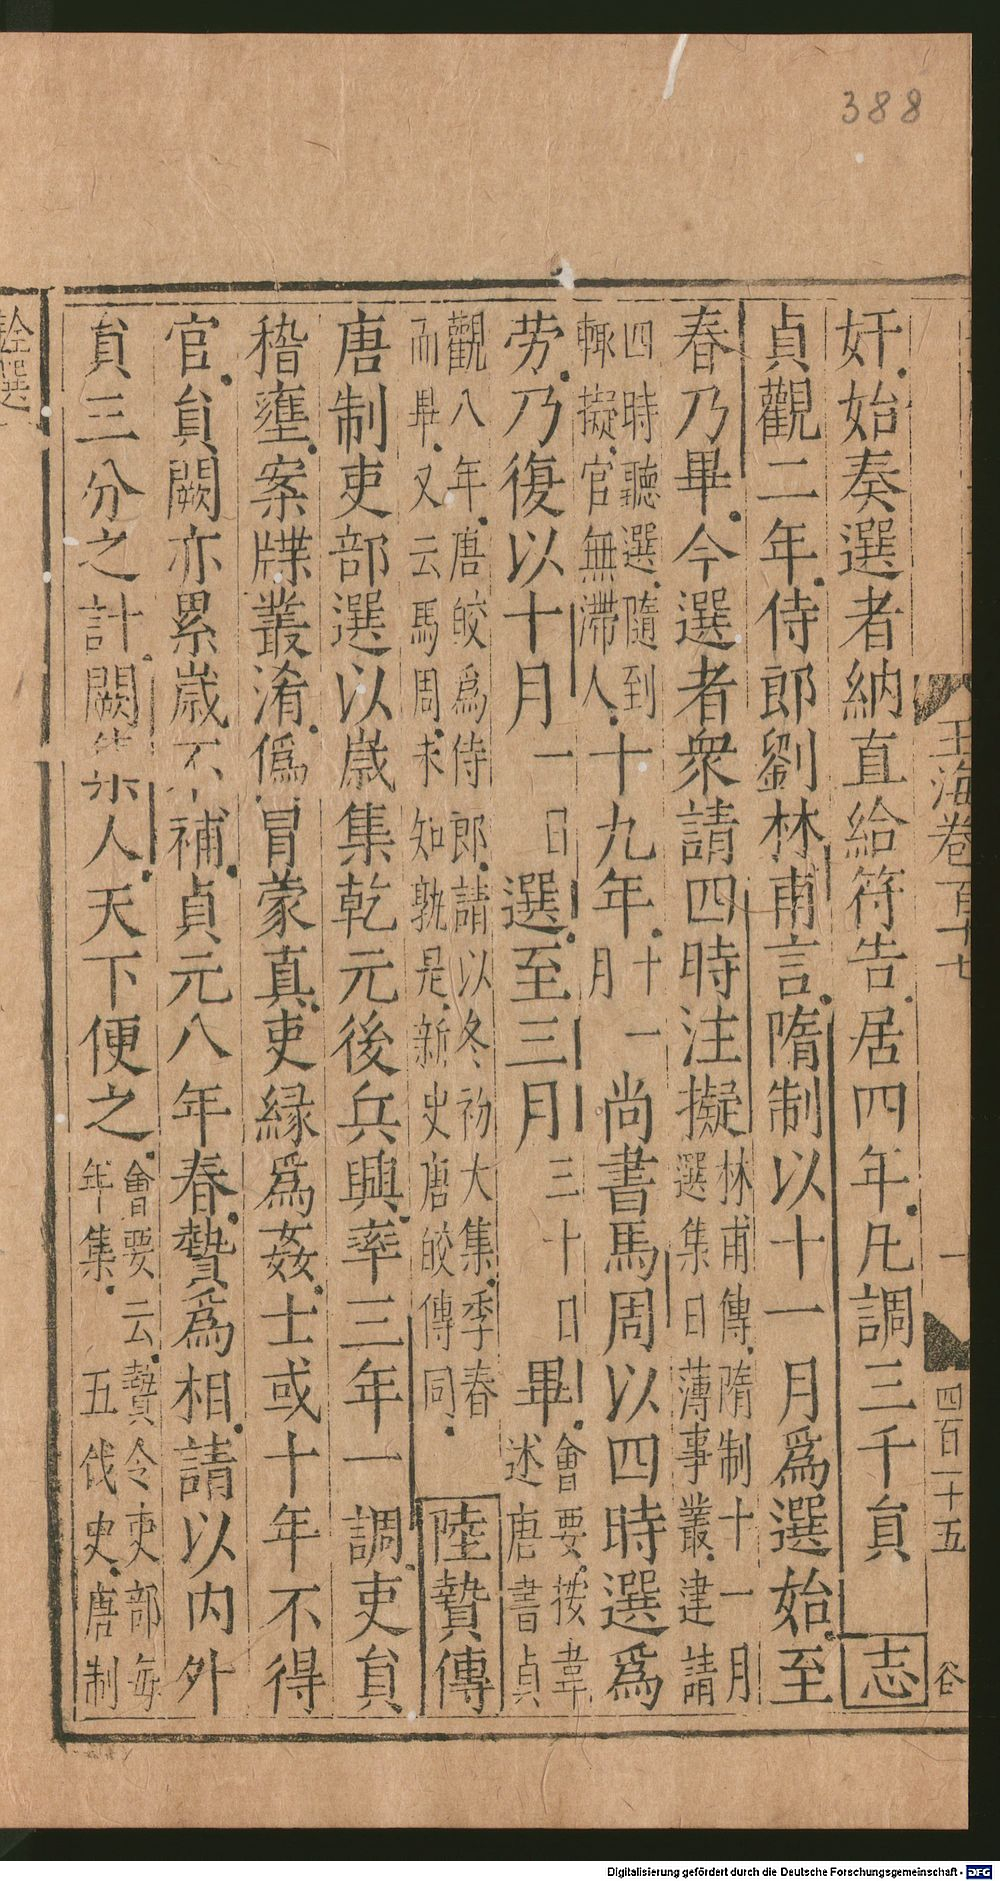 388
玉海卷百十七
一
四百一十五
谷
奸始奏選者納直給符告居四年凡調三千貟 志
貞觀二年侍郎劉林甫言隋制以十一月爲選始至
春乃畢今選者衆請四時注擬 林甫傳隋制十一月
選集日薄事叢建請
四時聽選隨到
輙擬官無滯人 十九年 十一
月 尚書馬周以四時選爲
勞乃復以十月 一日 選至三月 三十日 畢 會要按韋
述唐書貞
觀八年唐皎爲侍郎請以冬初大集季春
而畢又云馬周未知孰是新史唐皎傳同 陸贄傳
唐制吏部選以嵗集乾元後兵興率三年一調吏貟
稽壅案牒叢淆僞冒蒙真吏緣爲姦士或十年不得
官貟闕亦累嵗不補貞元八年春贄爲相請以内外
貟三分之計闕集人天下便之 會要云贄令吏部每
年集 五代史唐制
銓選
Digitalisierung gefördert durch die Deutsche Forschungsgemeinschaft - DFG